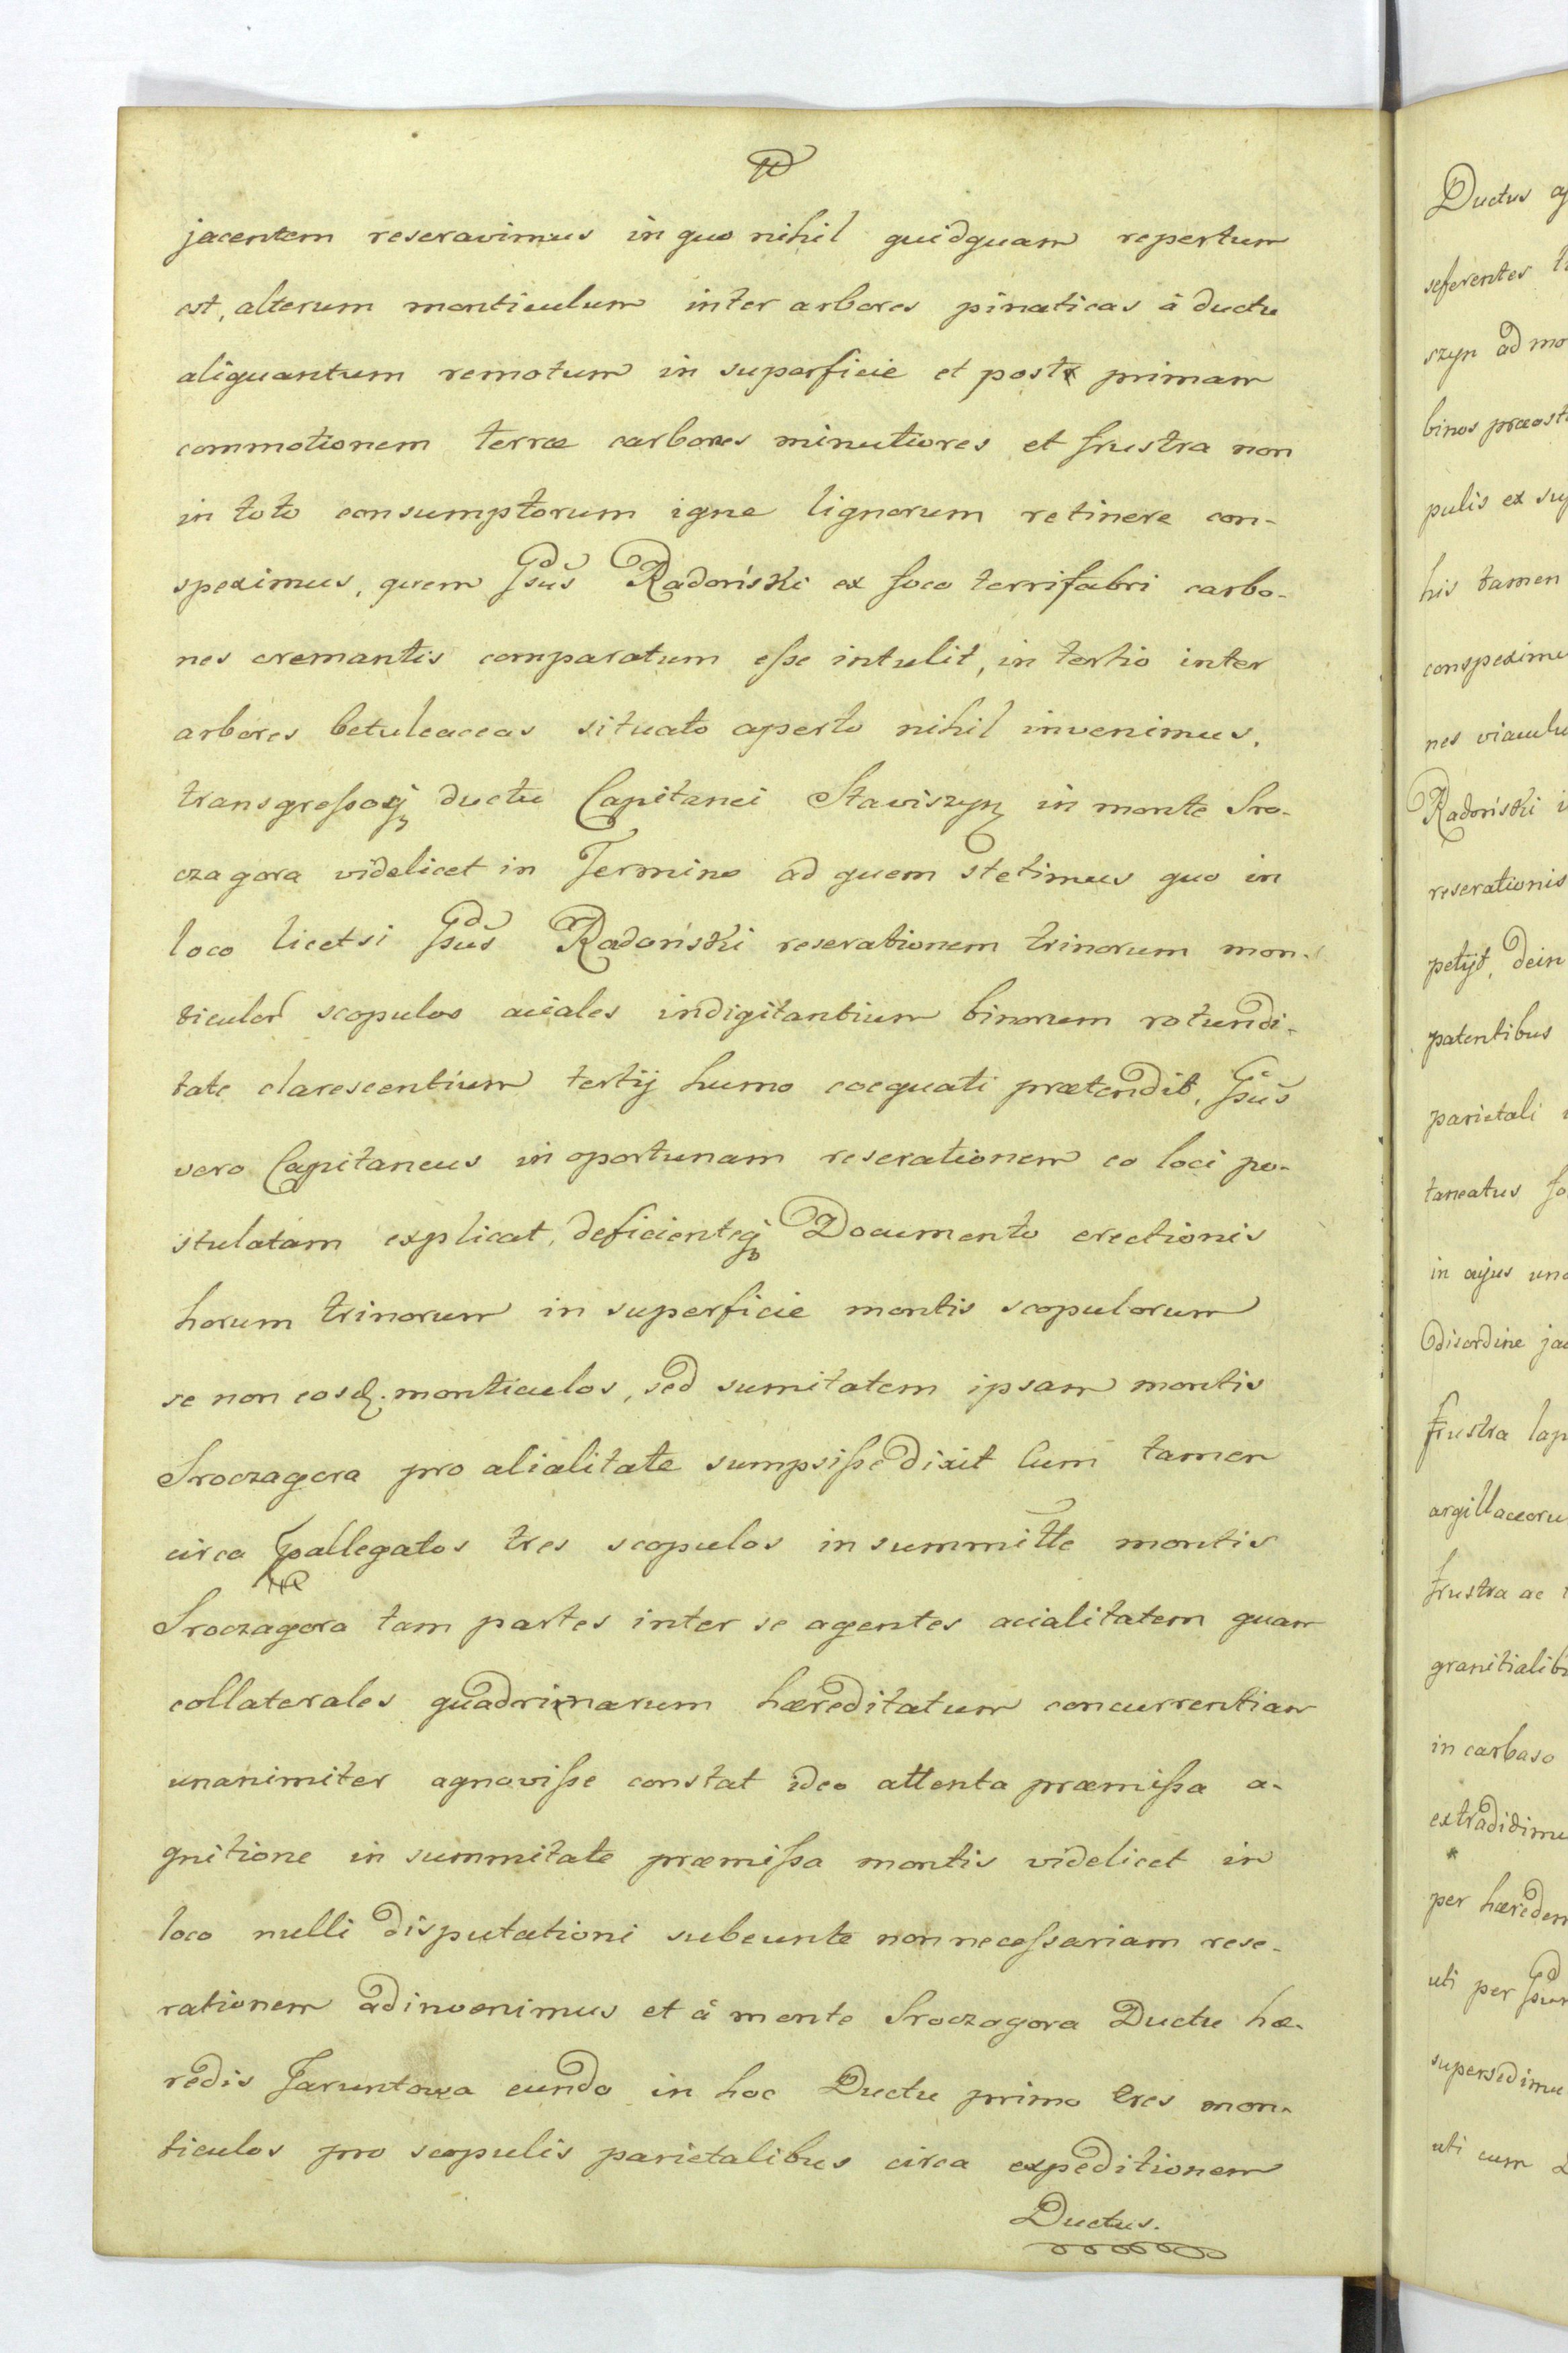 jacentem reseravimus in quo nihil quidquam repertum
est, alterum monticulum inter arbores pinaticas à ductu
aliquantum remotum in superficie et post primam
commotionem terræ carbones minutiores et frustra non
in toto consumptorum igne lignorum retinere con-
speximus, quem Radoński ex foco terrifabri carbo-
nes cremantis comparatum eſse intulit, in tertio inter
arbores betuleaceas situato aperto nihil invenimus,
transgreſsoq ductu Capitanei Stawiszyn in monte Sro-
czagora videlicet in Termino ad quem stetimus quo in
loco licetsi Radoński reserationem trinorum mon-
ticulor scopulos aciales indigitantium binorum rotundi-
tate clarescentium tertij humo coequati prætendit,
vero Capitaneus in oportunam reserationem eo loci po-
stulatam explicat, deficienteq Documento erectionis
horum trinorum in superficie montis scopulorum
se non eosd. monticulos, sed sumitatem ipsam montis
Sroczagora pro alialitate sumpsiſse dixit Cum tamen
circa pallegatos tres scopulos in summitte montis
Sroczagora tam partes inter se agentes acialitatem quam
collaterales quadrinarum hæreditatum concurrentiam
unanimiter agnoviſse constat ideo attenta præmiſsa a-
gnitione in summitate præmiſsa montis videlicet in
loco nulli disputationi subeunte non neceſsariam rese-
rationem adinvenimus et à monte Sroczagora Ductu hæ-
redis Jaruntowa eundo in hoc Ductu primo tres mon-
ticulos pro scopulis parietalibus circa expeditionem
Ductus.
Ductus
seferentes
szyn ad
binos
pulis ex
his tamen
nes
Radoński
reserationis
petijt, dein
patentibus
parietali
taneatus
in cujus
disordine
frustra
frustra ac
in carbaso
per
uti per
uti cum